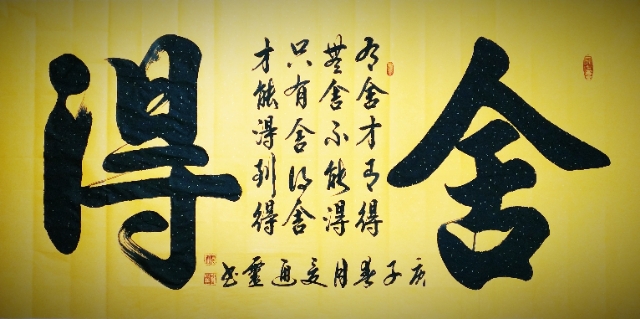 舍得
有舍才有得
無舍不能得
只有舍得舍
才能得到得
庚子春月通靈书